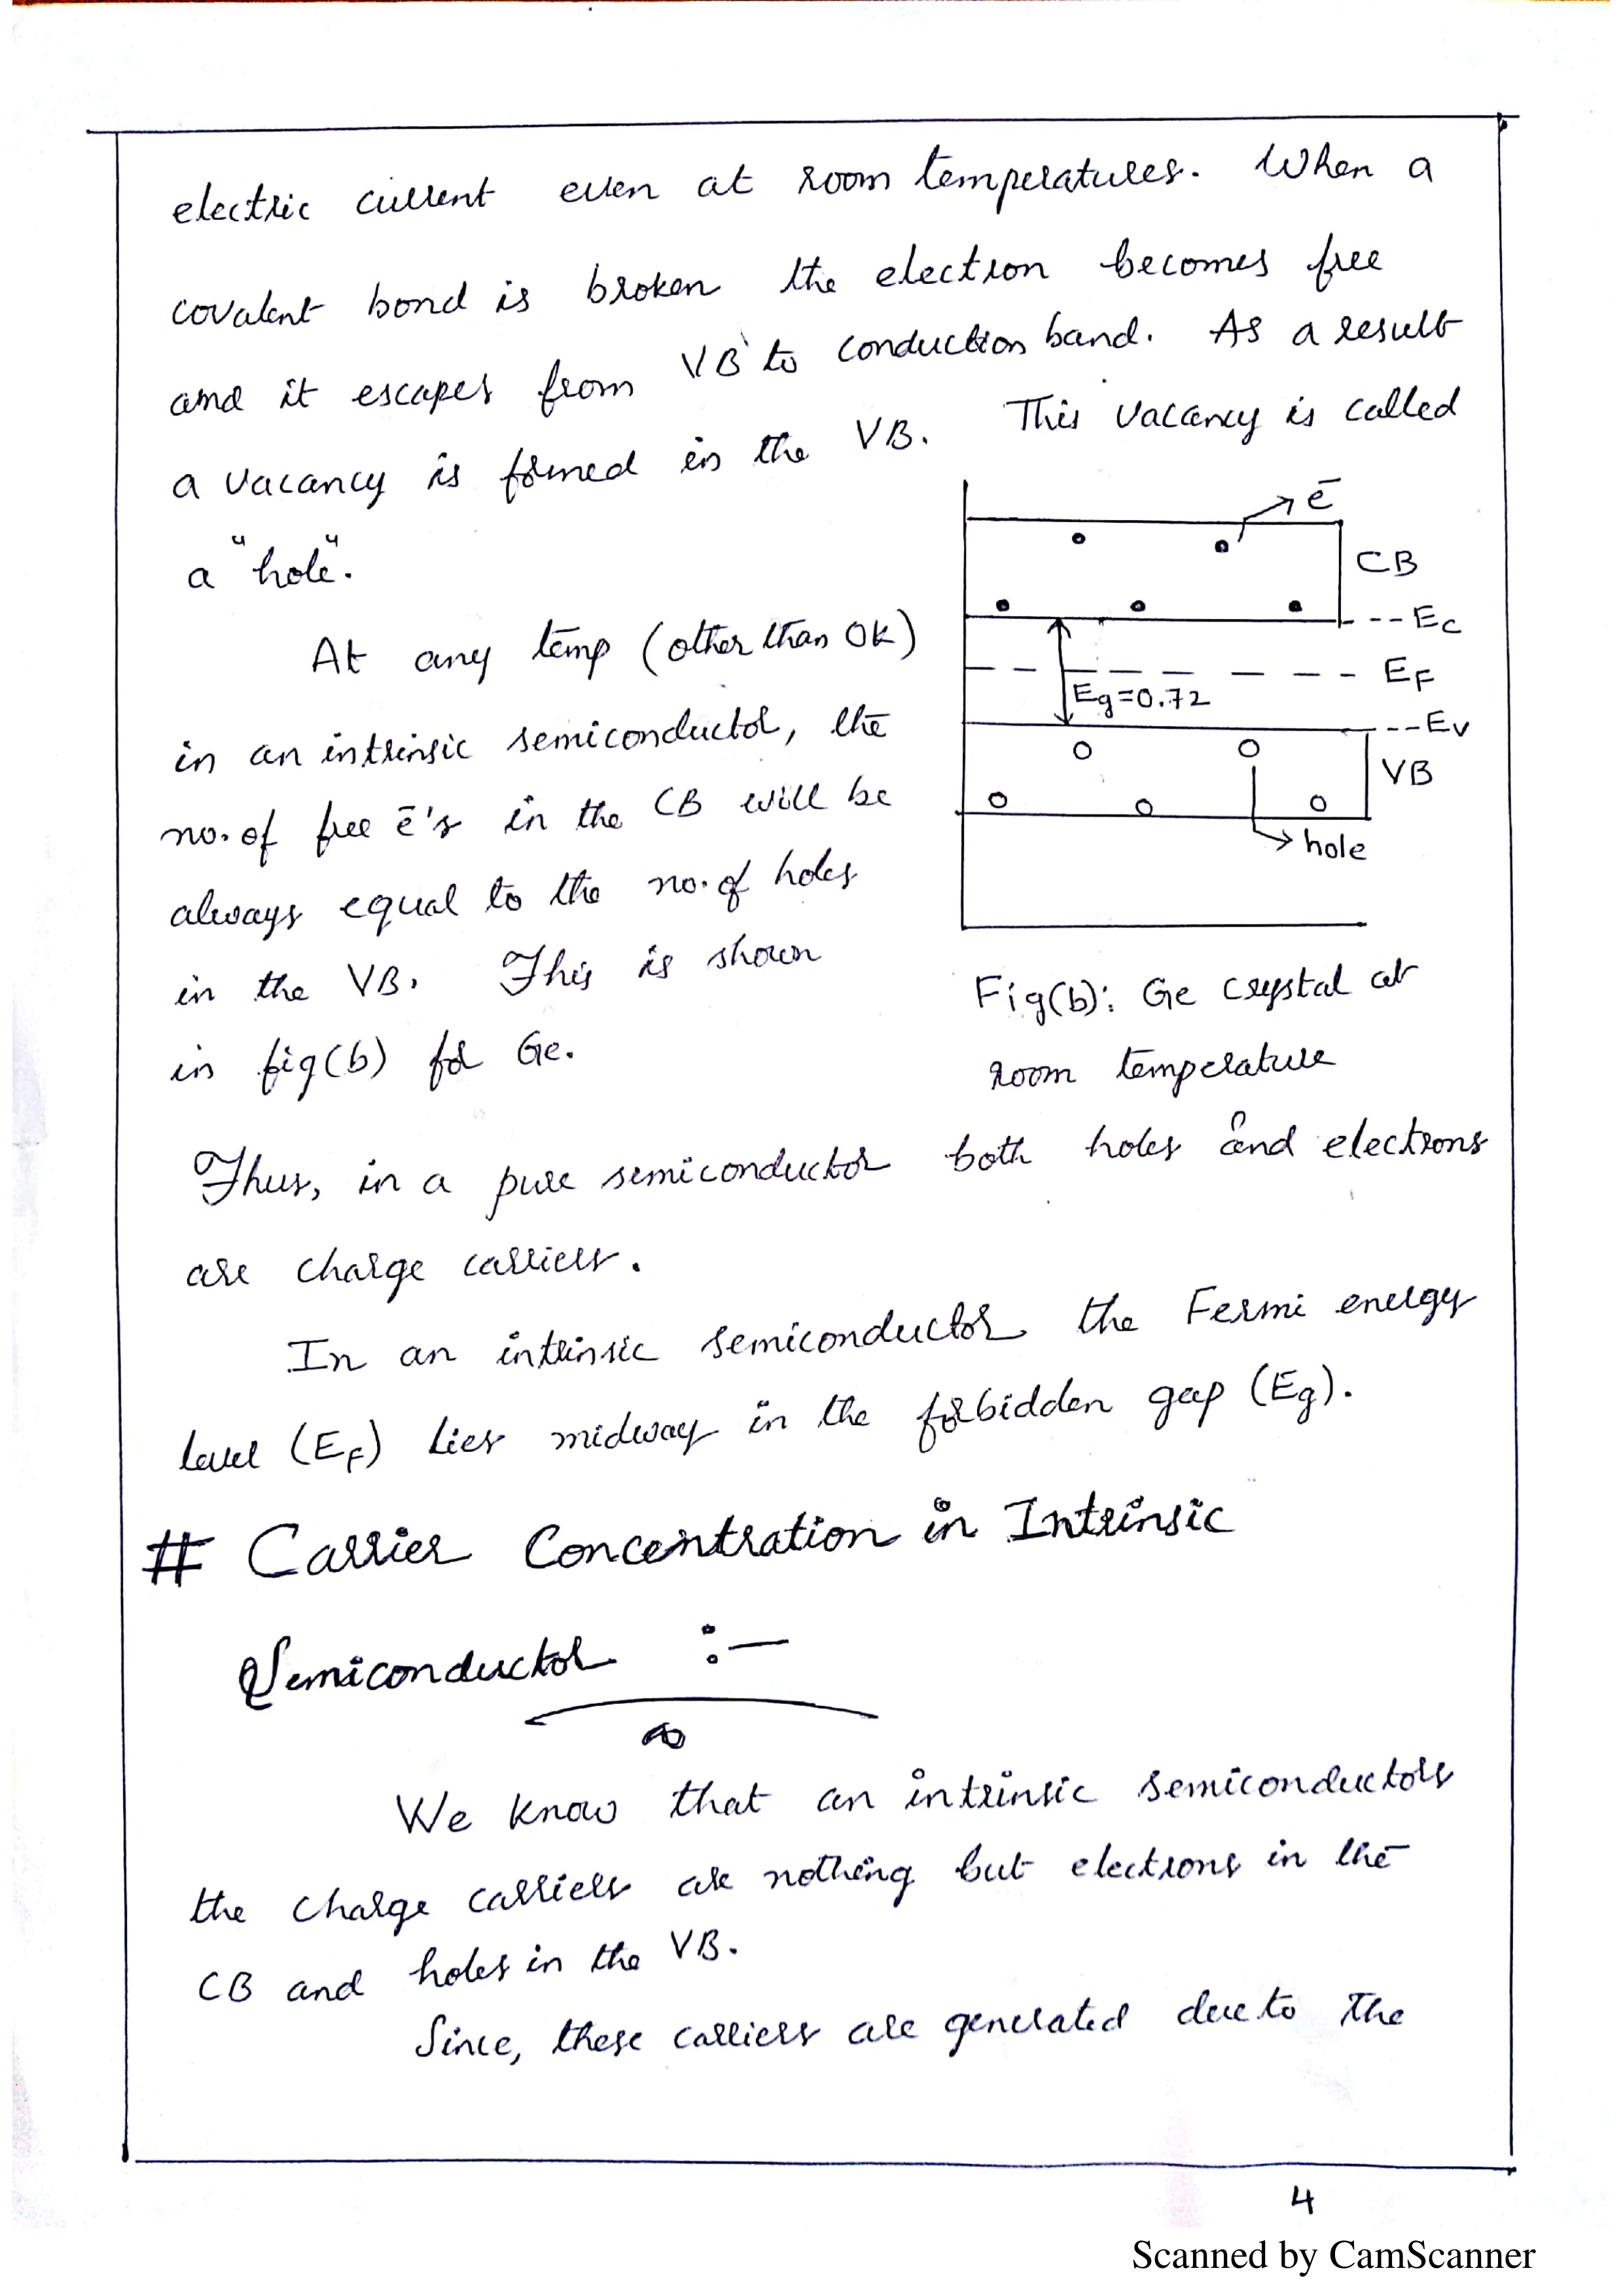 electric current even at room temperatures. When a
covalent bond is broken the electron becomes free
and it escapes from VB to conduction band. As a result
a vacancy is formed in the VB. This vacancy is called
a "hole".
At any temp (other than 0K)
in an intrinsic semiconductor, the
no. of free ē's in the CB will be
always equal to the no. of holes
in the VB. This is shown
in fig(b) for Ge.
ē
CB
Ec
EF
Eg=0.72
Ev
VB
hole
Fig(b): Ge crystal at
room temperature
Thus, in a pure semiconductor both holes and electrons
are charge carriers.
In an intrinsic semiconductor the Fermi energy
level (EF) lies midway in the forbidden gap (Eg).
# Carrier Concentration in Intrinsic
Semiconductor :-
We know that an intrinsic semiconductors
the charge carriers are nothing but electrons in the
CB and holes in the VB.
Since, these carriers are generated due to the
4
Scanned by CamScanner